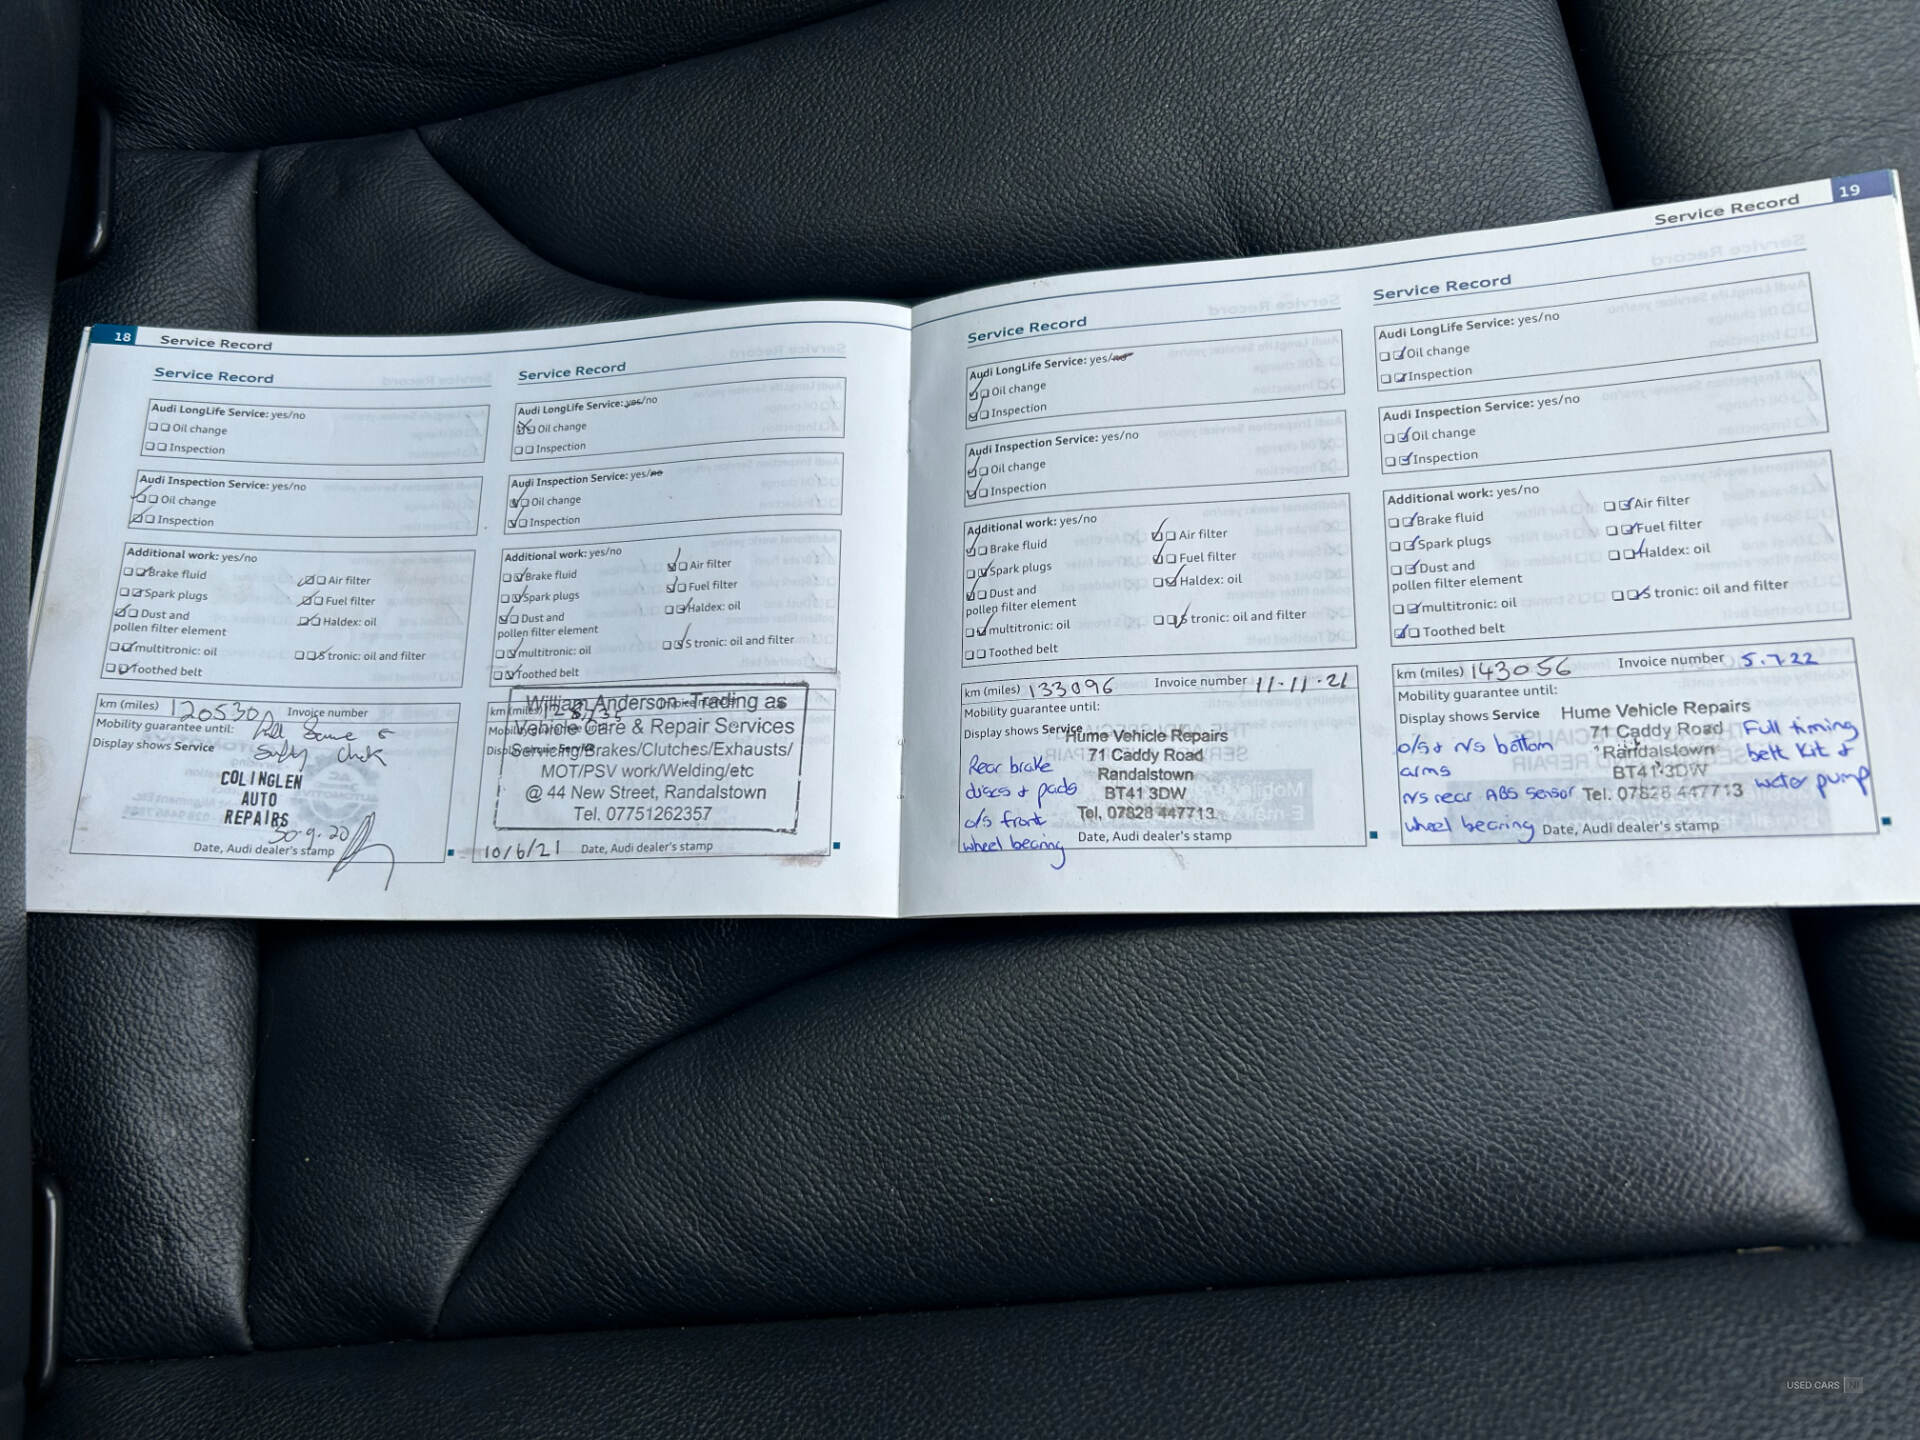 18 Service Record
Service Record
Audi LongLife Service: yes/no
Oil change
Inspection
Audi Inspection Service: yes/no
Oil change
Inspection
Additional work: yes/no
Brake fluid
Air filter
Spark plugs
Fuel filter
Dust and
pollen filter element
Haldex: oil
multitronic: oil
S tronic: oil and filter
Toothed belt
km (miles) 120530
Invoice number
Mobility guarantee until:
Display shows Service
COLINGLEN
AUTO
REPAIRS
30.9.20
Date, Audi dealer's stamp
Service Record
Audi LongLife Service: yes/no
Oil change
Inspection
Audi Inspection Service: yes/no
Oil change
Inspection
Additional work: yes/no
Brake fluid
Air filter
Spark plugs
Fuel filter
Dust and
pollen filter element
Haldex: oil
multitronic: oil
S tronic: oil and filter
Toothed belt
km (miles)
William Anderson Trading as
Vehicle Care & Repair Services
Servicing/Brakes/Clutches/Exhausts/
MOT/PSV work/Welding/etc
@ 44 New Street, Randalstown
Tel. 07751262357
10/6/21 Date, Audi dealer's stamp
Service Record 19
Service Record
Audi LongLife Service: yes/no
Oil change
Inspection
Audi Inspection Service: yes/no
Oil change
Inspection
Additional work: yes/no
Brake fluid
Air filter
Spark plugs
Fuel filter
Dust and
pollen filter element
Haldex: oil
multitronic: oil
S tronic: oil and filter
Toothed belt
km (miles) 133096 Invoice number 11.11.21
Mobility guarantee until:
Display shows Service
Hume Vehicle Repairs
71 Caddy Road
Randalstown
BT41 3DW
Tel. 07828 447713
Rear brake
discs & pads
o/s front
wheel bearing
Date, Audi dealer's stamp
Service Record
Audi LongLife Service: yes/no
Oil change
Inspection
Audi Inspection Service: yes/no
Oil change
Inspection
Additional work: yes/no
Brake fluid
Air filter
Spark plugs
Fuel filter
Dust and
pollen filter element
Haldex: oil
multitronic: oil
S tronic: oil and filter
Toothed belt
km (miles) 143056 Invoice number 5.7.22
Mobility guarantee until:
Display shows Service
Hume Vehicle Repairs
71 Caddy Road
Randalstown
BT41 3DW
Tel. 07828 447713
o/s & n/s bottom
arms
n/s rear ABS sensor
wheel bearing
Full timing
belt kit &
water pump
Date, Audi dealer's stamp
USED CARS NI